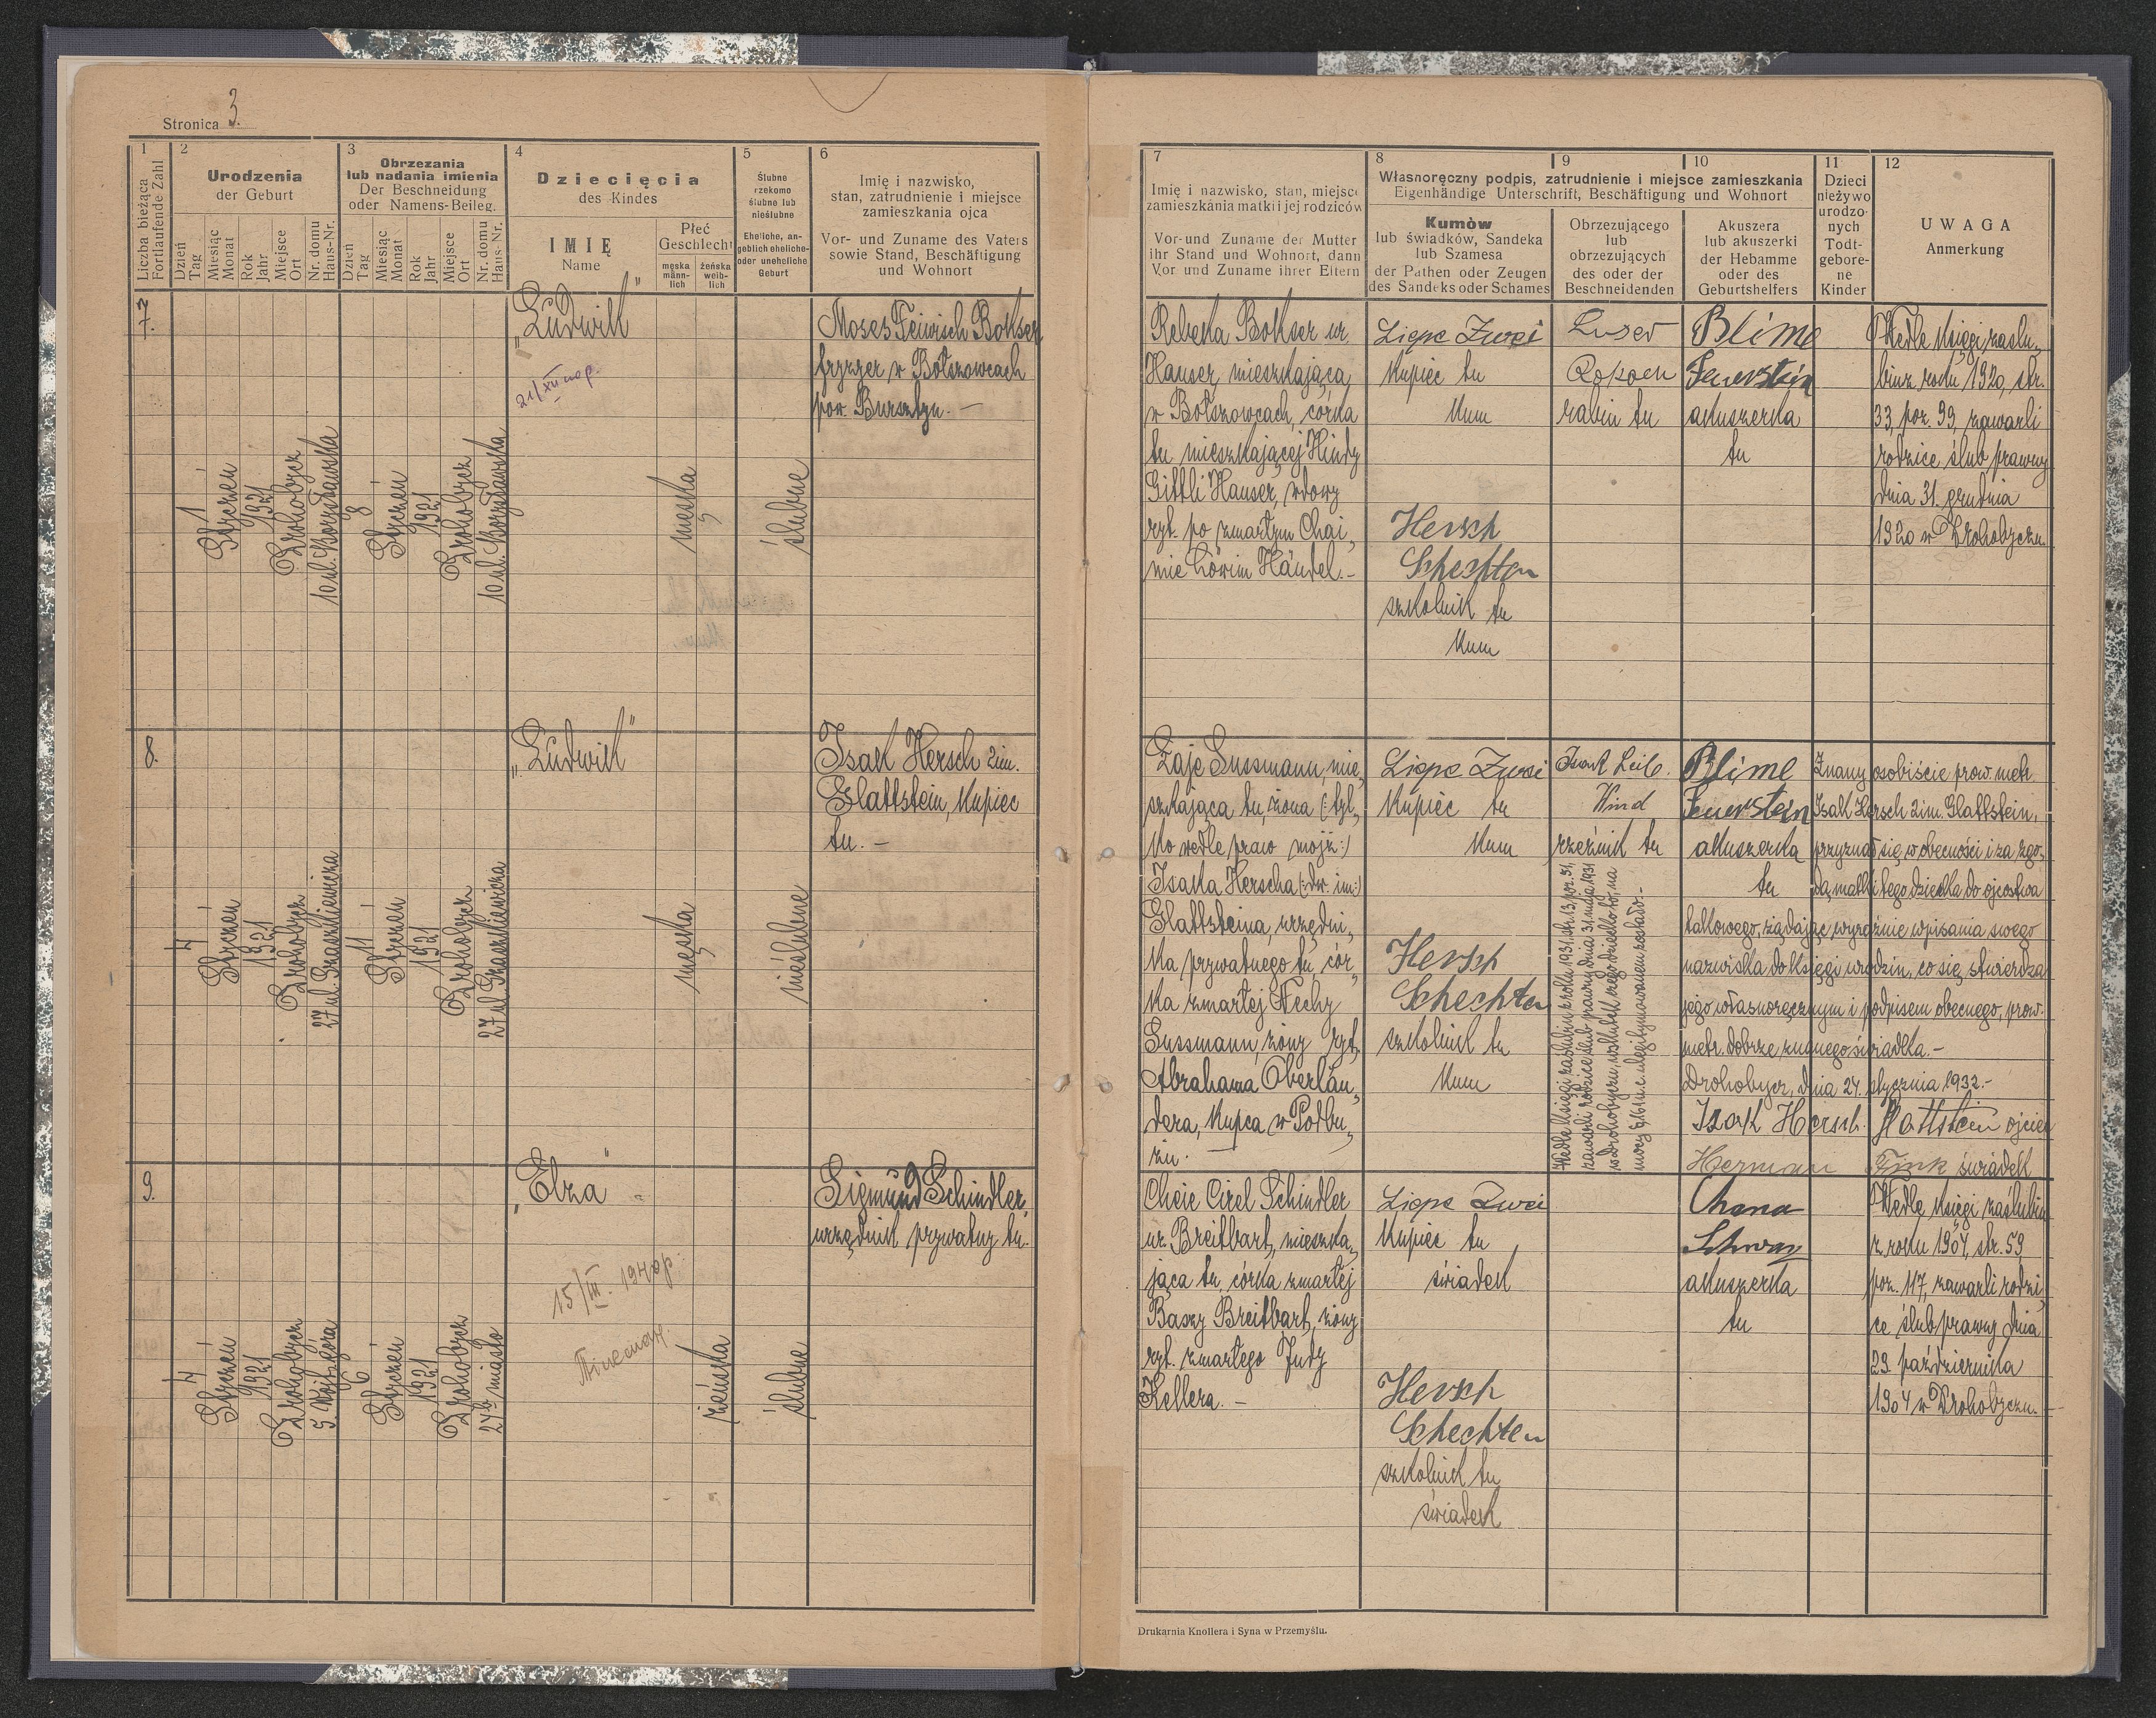 Stronica 3.
1
Liczba bieżąca
Fortlaufende Zahl
2
Urodzenia
der Geburt
Dzień
Tag
Miesiąc
Monat
Rok
Jahr
Miejsce
Ort
Nr. domu
Haus-Nr.
3
Obrzezania
lub nadania imienia
Der Beschneidung
oder Namens-Beileg.
Dzień
Tag
Miesiąc
Monat
Rok
Jahr
Miejsce
Ort
Nr. domu
Haus-Nr.
4
Dziecięcia
des Kindes
IMIĘ
Name
Płeć
Geschlecht
męska
männ-
lich
żeńska
weib-
lich
5
Ślubne
rzekomo
ślubne lub
nieślubne
Eheliche, an-
geblich eheliche-
oder uneheliche
Geburt
6
Imię i nazwisko,
stan, zatrudnienie i miejsce
zamieszkania ojca
Vor- und Zuname des Vaters
sowie Stand, Beschäftigung
und Wohnort
7
Imię i nazwisko, stan, miejsce
zamieszkania matki i jej rodziców
Vor-und Zuname der Mutter
ihr Stand und Wohnort, dann
Vor und Zuname ihrer Eltern
8
9
10
Własnoręczny podpis, zatrudnienie i miejsce zamieszkania
Eigenhändige Unterschrift, Beschäftigung und Wohnort
Kumów
lub świadków, Sandeka
lub Szamesa
der Pathen oder Zeugen
des Sandeks oder Schames
Obrzezującego
lub
obrzezujących
des oder der
Beschneidenden
Akuszera
lub akuszerki
der Hebamme
oder des
Geburtshelfers
11
Dzieci
nieżywo
urodzo-
nych
Todt-
gebore-
ne
Kinder
12
UWAGA
Anmerkung
7.
1
Styczeń
1921
Drohobycz
10 ul. Borysławska
8
Styczeń
1921
Drohobycz
10 ul. Borysławska
„Ludwik"
21/XII
męska
ślubne
Moses Feiwisch Bokser
fryzyer w Bołszowcach
pow. Bursztyn. —
Rebeka Bokser ur.
Hauser, mieszkająca
w Bołszowcach, córka
tu mieszkającej Hindy
Gittli Hauser, wdowy
ryt. po zmarłym Chai„
mie Löwim Händel. –
Liepe Zwei
kupiec tu
kum
Hersch
Schechter
szkolnik tu
kum
Luser
Rokach
rabin tu
Blime
Feuerstein
akuszerka
tu
Wedle księgi zaślu„
bin z roku 1920, str.
33, poz. 99, zawarli
rodzice ślub prawny
dnia 31. grudnia
1920 w Drohobyczu.
8.
4
Styczeń
1921
Drohobycz
27 ul.
11
Styczeń
1921
Drohobycz
27 ul.
„Ludwik"
męska
nieślubne
Isak Hersch 2im.
Glattstein, kupiec
tu. –
Zaje Sussmann, mie„
szkająca tu, żona (: tyl„
ko wedle praw mojż:)
Isaka Herscha (: dw. im:)
Glattsteina, urzędni„
ka prywatnego tu, cór„
ka zmarłej Nechy
Sussmann, żony ryt.
Abrahama Oberlän„
dera, kupca w Podbu„
żu. —
Liepe Zwei
kupiec tu
kum
Hersch
Schechter
szkolnik tu
kum
Isaak Leib
Wind
rzeźnik tu
Wedle księgi zaślubin z roku 1931, str. 13, poz. 51,
zawarli rodzice ślub prawny dnia 31. maja 1931
w Drohobyczu, wskutek czego dziecko to, na
mocy § 161 u. c. legitymowanem zostało. –
Blime
Feuerstein
akuszerka
tu
Znany osobiście prow. metr.
Isak Hersch 2im. Glattstein,
przyznał się w obecności i za zgo„
dą matki tego dziecka do ojcostwa
takowego, żądając wyraźnie wpisania swego
nazwiska do księgi urodzin, co się stwierdza
jego własnoręcznym i podpisem obecnego, prow.
metr. dobrze znanego świadka. –
Drohobycz, dnia 24. stycznia 1932. –
Izak Hersch Glattstein ojciec
Herman Fink świadek
9.
4
Styczeń
1921
Drohobycz
5. Wójt. góra
6
Styczeń
1921
Drohobycz
miasto
„Elza"
15/III. 1940р.
żeńska
ślubne
Sigmund Schindler,
urzędnik prywatny tu.
Cheie Cirel Schindler
ur. Breitbart, mieszka„
jąca tu, córka zmarłej
Baszy Breitbart, żony
ryt. zmarłego Judy
Kellera. –
Liepe Zwei
kupiec tu
świadek
Hersch
Schechter
szkolnik tu
świadek
Chana
Schwarz
akuszerka
tu
Wedle księgi zaślubin
z roku 1904, str. 59
poz. 117, zawarli rodzi„
ce ślub prawny dnia
23. października
1904 w Drohobyczu. –
Drukarnia Knollera i Syna w Przemyślu.